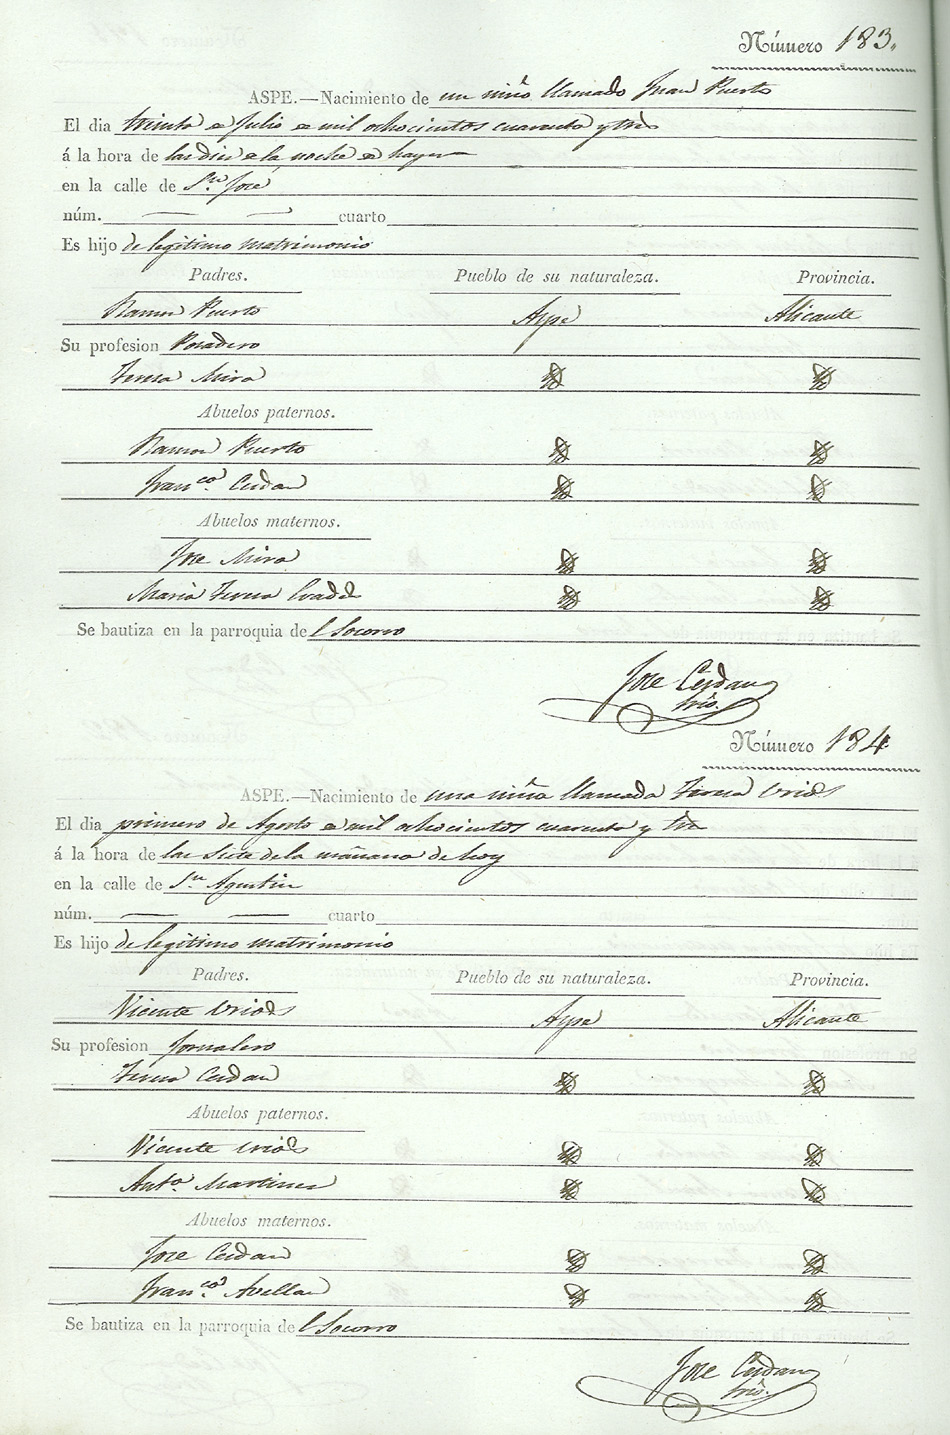 Número 183.
ASPE.—Nacimiento de un niño llamado Juan Puerto
El dia trienta de Julio de mil ochocientos cuarenta y tres
á la hora de las diez de la noche de hayer
en la calle de Sn. José
núm. — — cuarto
Es hijo de legitimo matrimonio
Padres. Pueblo de su naturaleza. Provincia.
Ramon Puerto Aspe Alicante
Su profesion Posadero
Teresa Mira
Abuelos paternos.
Ramon Puerto
Franca. Cerdan
Abuelos maternos.
Jose Mira
Maria Teresa
Se bautiza en la parroquia del Socorro
Jose Cerdan
Srio.
Número 184
ASPE.—Nacimiento de una niña llamada Teresa Urios
El dia primero de Agosto de mil ochocientos cuarenta y tres
á la hora de las siete de la mañana de hoy
en la calle de Sn. Agustin
núm. — — cuarto
Es hijo de legitimo matrimonio
Padres. Pueblo de su naturaleza. Provincia.
Vicente Urios Aspe Alicante
Su profesion Jornalero
Teresa Cerdan
Abuelos paternos.
Vicente Urios
Anta. Martinez
Abuelos maternos.
Jose Cerdan
Franca. Avellan
Se bautiza en la parroquia del Socorro
Jose Cerdan
Srio.